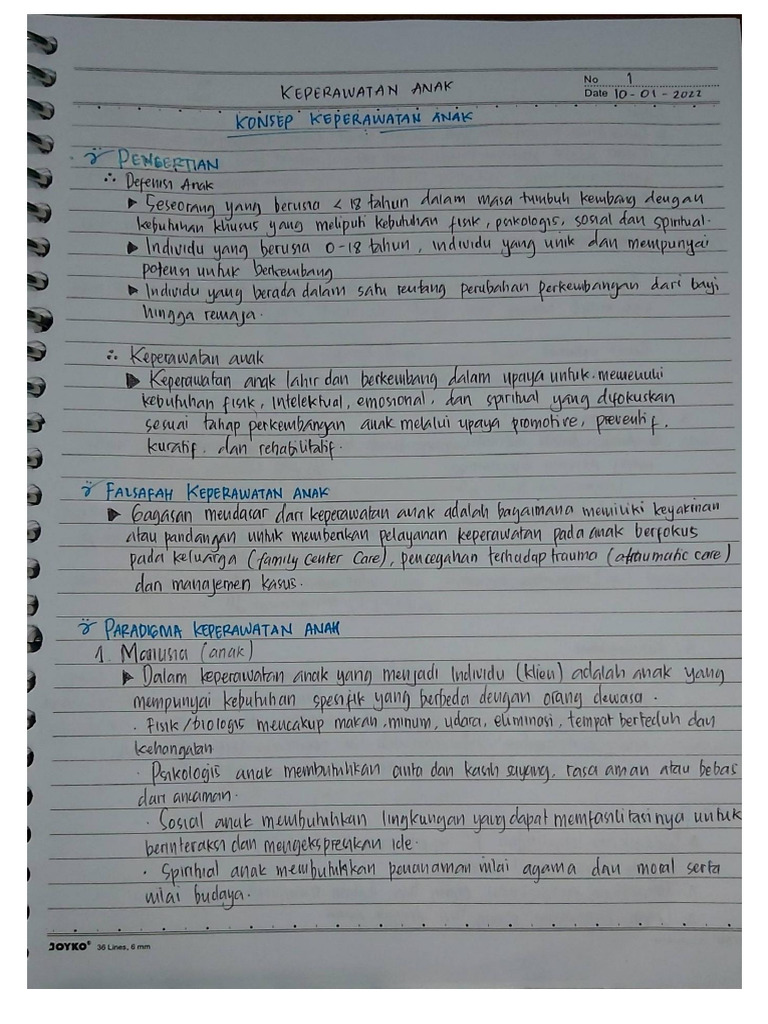 No 1
KEPERAWATAN ANAK
Date 10-01-2022
KONSEP KEPERAWATAN ANAK
PENGERTIAN
∴ Defenisi Anak
▶ Seseorang yang berusia < 18 tahun dalam masa tumbuh kembang dengan
kebutuhan khusus yang meliputi kebutuhan fisik, psikologis, sosial dan spiritual.
▶ Individu yang berusia 0-18 tahun, individu yang unik dan mempunyai
potensi untuk berkembang
▶ Individu yang berada dalam satu rentang perubahan perkembangan dari bayi
hingga remaja.
∴ Keperawatan anak
▶ Keperawatan anak lahir dan berkembang dalam upaya untuk memenuhi
kebutuhan fisik, intelektual, emosional, dan spiritual yang difokuskan
sesuai tahap perkembangan anak melalui upaya promotive, preventif,
kuratif, dan rehabilitatif.
FALSAFAH KEPERAWATAN ANAK
▶ Gagasan mendasar dari keperawatan anak adalah bagaimana memiliki keyakinan
atau pandangan untuk memberikan pelayanan keperawatan pada anak berfokus
pada keluarga (family Center Care), pencegahan terhadap trauma (atraumatic care)
dan manajemen kasus.
PARADIGMA KEPERAWATAN ANAK
1. Manusia (anak)
▶ Dalam keperawatan anak yang menjadi Individu (klien) adalah anak yang
mempunyai kebutuhan spesifik yang berbeda dengan orang dewasa.
· Fisik/biologis mencakup makan, minum, udara, eliminasi, tempat berteduh dan
kehangatan
· Psikologis anak membutuhkan cinta dan kasih sayang, rasa aman atau bebas
dari ancaman.
· Sosial anak membutuhkan lingkungan yang dapat memfasilitasinya untuk
berinteraksi dan mengekspresikan ide.
· Spiritual anak membutuhkan penanaman nilai agama dan moral serta
nilai budaya.
JOYKO® 36 Lines, 6 mm